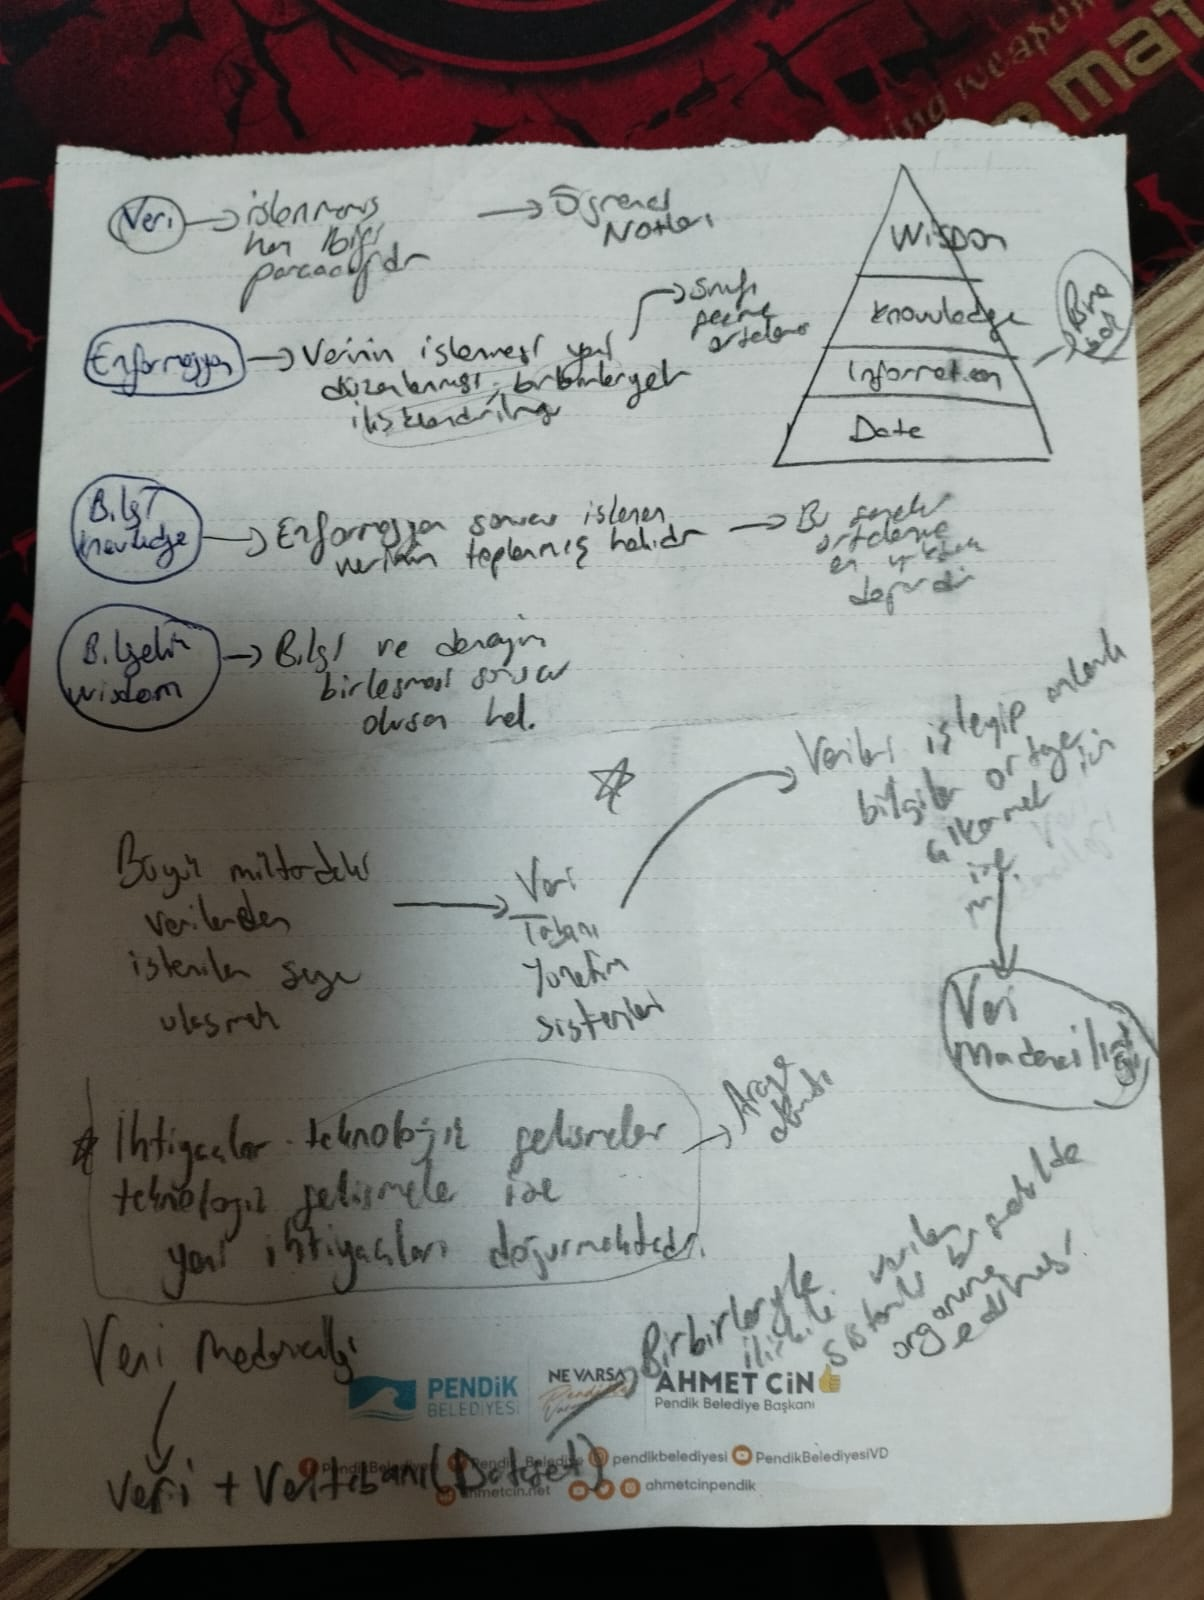 Veri → işlenmemiş
her bilgi
parçacığıdır
→ Öğrenci
Notları
Enformasyon → Verinin işlenmesi yani
düzenlenmesi, birbirleriyle
ilişkilendirilmesi
→ Sınıf
geçme
ortalama
Wisdom
Knowledge
Information
Data
Bilgi
knowledge → Enformasyon sonucu işlenen
verinin toplanmış halidir
→ Bu
ortalama
en
Bilgelik
wisdom → Bilgi ve deneyim
birleşmesi sonucu
oluşan hal.
Büyük miktardaki
verilerden
istenilen şeye
ulaşmak
→ Veri
Tabanı
Yönetim
Sistemleri
→ Verileri işleyip anlamlı
bilgiler ortaya
çıkarmak için
ise
Veri
Madenciliği
İhtiyaçlar teknolojik gelişmeler
teknolojik gelişmeler ise
yeni ihtiyaçları doğurmaktadır.
Veri Madenciliği
Birbirleriyle
ilişkili verilerin
sistemli bir şekilde
organize
edilmesi
PENDİK
BELEDİYESİ
NE VARSA
AHMET CİN
Pendik Belediye Başkanı
Veri + Veritabanı (Dataset)
pendikbelediyesi PendikBelediyesiVD
ahmetcin.net ahmetcinpendik